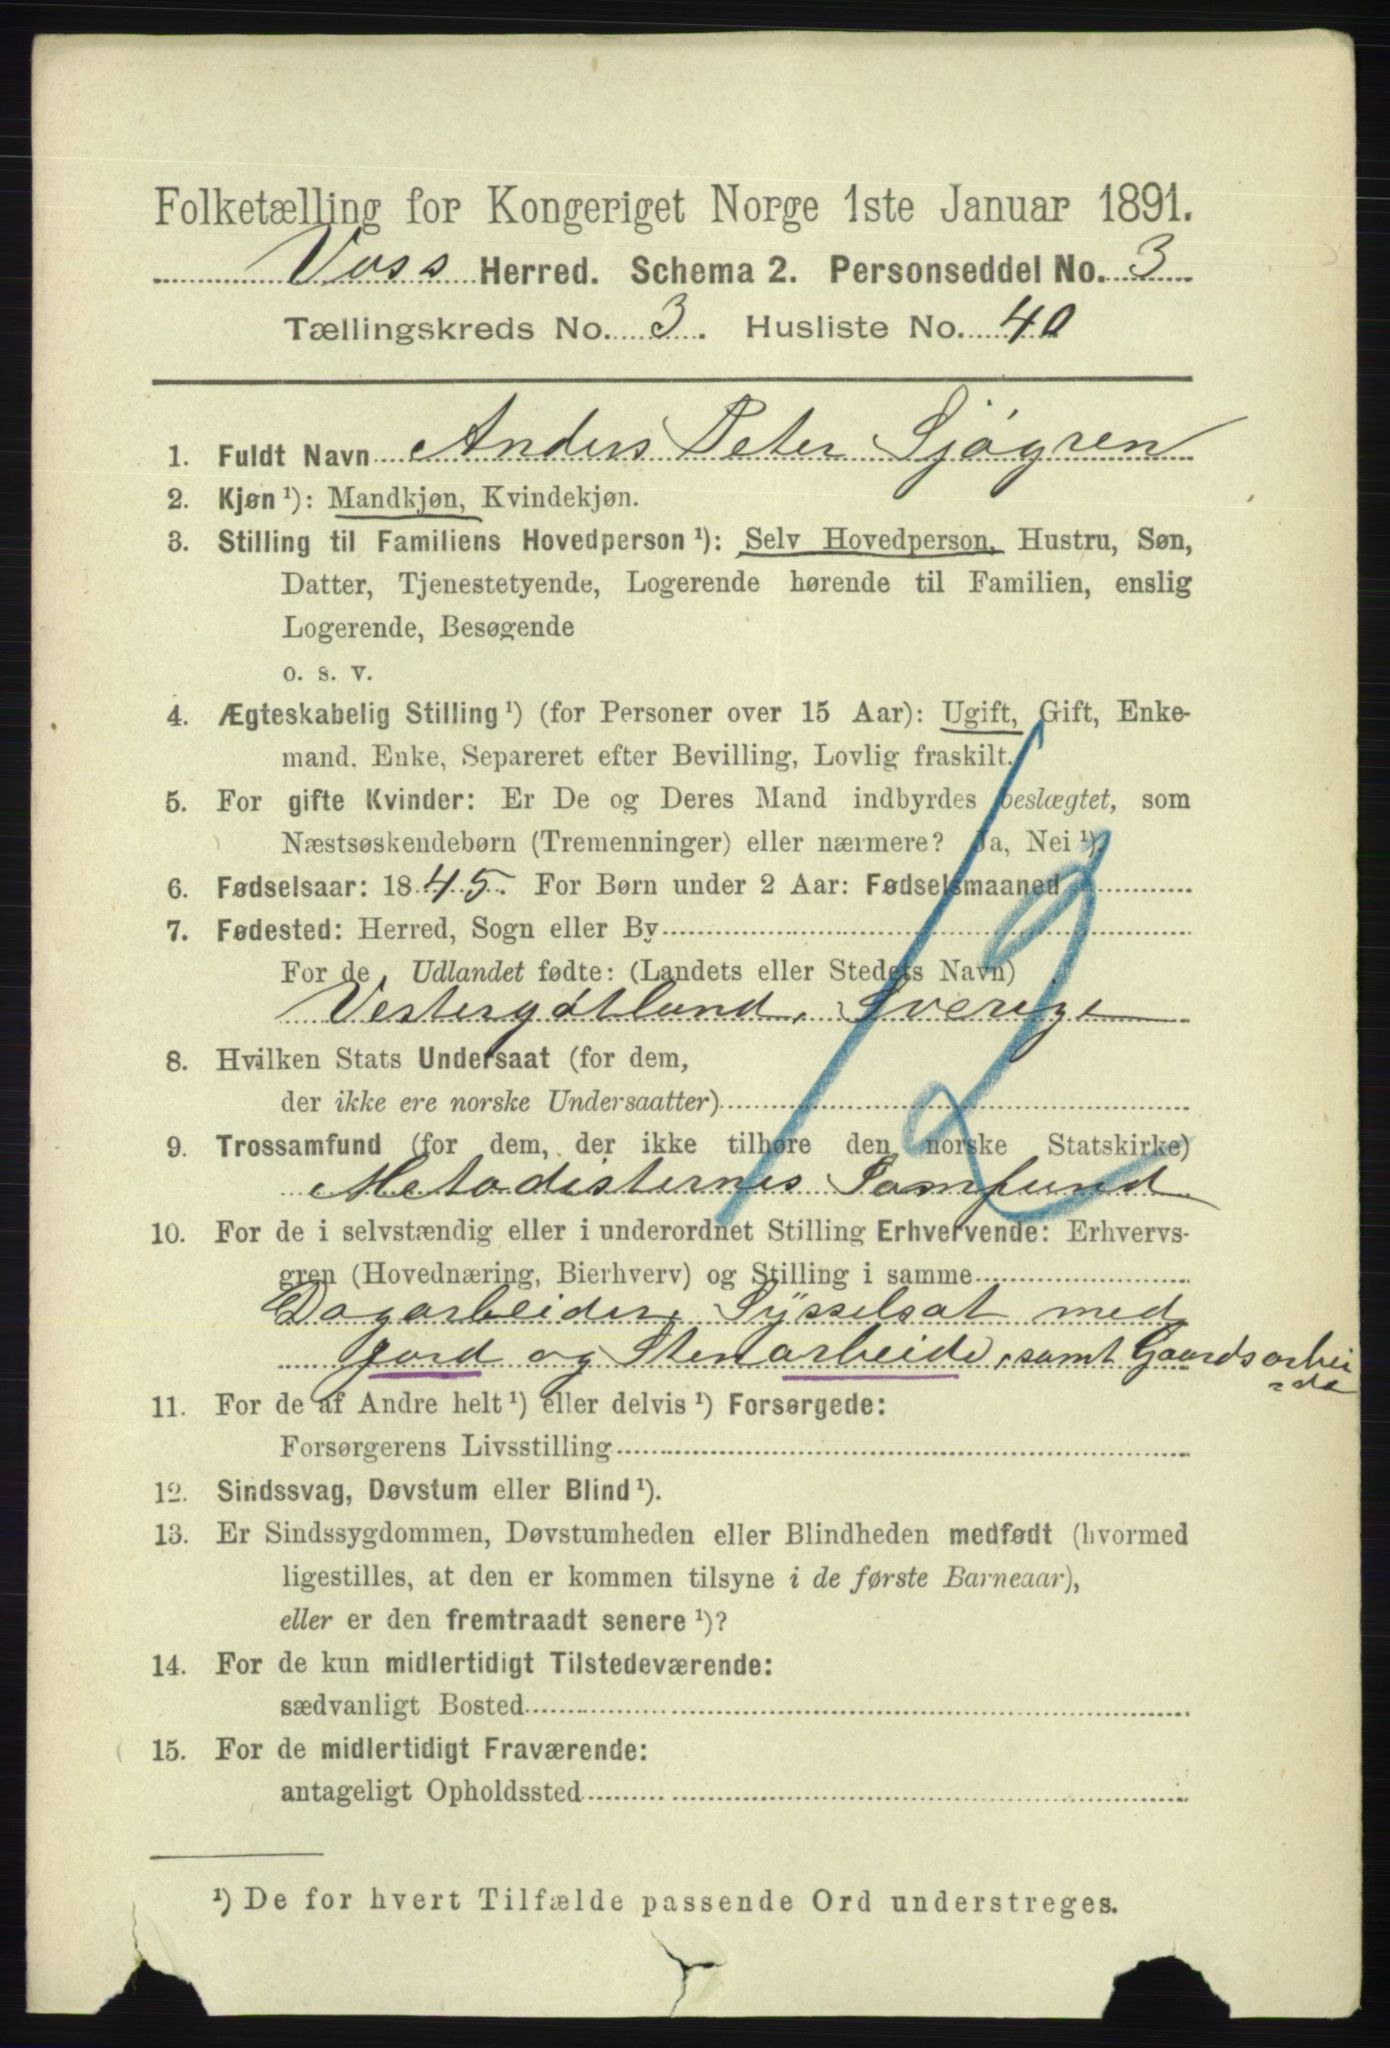 Folketælling for Kongeriget Norge 1ste Januar 1891.
Voss Herred. Schema 2. Personseddel No. 3
Tællingskreds No. 3. Husliste No. 40
1. Fuldt Navn Anders Peter Sjøgren
2. Kjøn¹): Mandkjøn, Kvindekjøn.
3. Stilling til Familiens Hovedperson¹): Selv Hovedperson, Hustru, Søn,
Datter, Tjenestetyende, Logerende hørende til Familien, enslig
Logerende, Besøgende
o. s. v.
4. Ægteskabelig Stilling¹) (for Personer over 15 Aar): Ugift, Gift, Enke-
mand, Enke, Separeret efter Bevilling, Lovlig fraskilt.
5. For gifte Kvinder: Er De og Deres Mand indbyrdes beslægtet, som
Næstsøskendebørn (Tremenninger) eller nærmere? Ja, Nei¹).
6. Fødselsaar: 1845. For Børn under 2 Aar: Fødselsmaaned
7. Fødested: Herred, Sogn eller By
For de i Udlandet fødte: (Landets eller Stedets Navn)
Vestergøtland, Sverige
8. Hvilken Stats Undersaat (for dem,
der ikke ere norske Undersaatter)
9. Trossamfund (for dem, der ikke tilhøre den norske Statskirke)
Metodisternes Samfund
10. For de i selvstændig eller i underordnet Stilling Erhvervende: Erhvervs-
gren (Hovednæring, Bierhverv) og Stilling i samme
Dagarbeider, Sysselsat med
jord og Stenarbeide, samt Gaardsarbei
=de
11. For de af Andre helt¹) eller delvis¹) Forsørgede:
Forsørgerens Livsstilling
12. Sindssvag, Døvstum eller Blind¹).
13. Er Sindssygdommen, Døvstumheden eller Blindheden medfødt (hvormed
ligestilles, at den er kommen tilsyne i de første Barneaar),
eller er den fremtraadt senere¹)?
14. For de kun midlertidigt Tilstedeværende:
sædvanligt Bosted
15. For de midlertidigt Fraværende:
antageligt Opholdssted
¹) De for hvert Tilfælde passende Ord understreges.